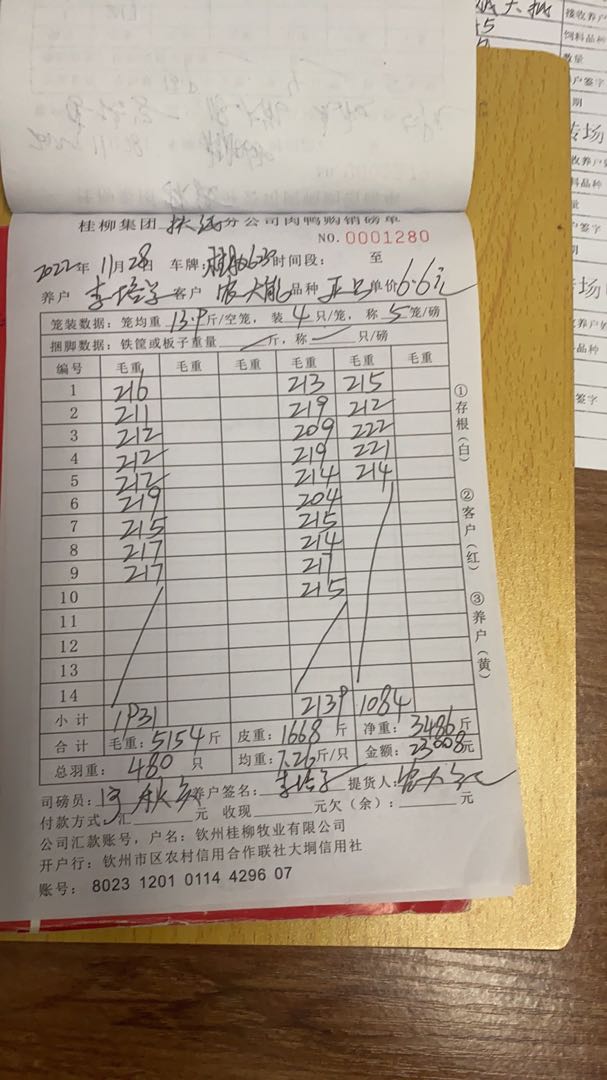 接收养户
5
饲料品种
数量
户签字
期
转场
收养户
料品种
量
户签字
期
桂柳集团 扶绥分公司肉鸭购销磅单
NO. 0001280
2022年 11月28日 车牌: 时间段: 至
养户 李培 客户 大 品种 单价 6.6元
笼装数据: 笼均重 13.9 斤/空笼, 装 4 只/笼, 称 5 笼/磅
捆脚数据: 铁筐或板子重量 斤, 称 只/磅
编号 毛重 毛重 毛重 毛重 毛重 毛重
1 216 213 215
2 211 219 212
3 212 209 222
4 212 219 221
5 212 214 214
6 219 204
7 215 215
8 217 214
9 217 217
10 215
11
12
13
14
小计 1931 2139 1084
合计 毛重: 5154 斤 皮重: 1668 斤 净重: 3486 斤
总羽重: 480 只 均重: 7.26 斤/只 金额: 23008元
司磅员: 养户签名: 李培 提货人:
付款方式: 汇 元 收现 元欠(余): 元
公司汇款账号, 户名: 钦州桂柳牧业有限公司
开户行: 钦州市区农村信用合作联社大垌信用社
账号: 8023 1201 0114 4296 07
①存根(白)
②客户(红)
③养户(黄)